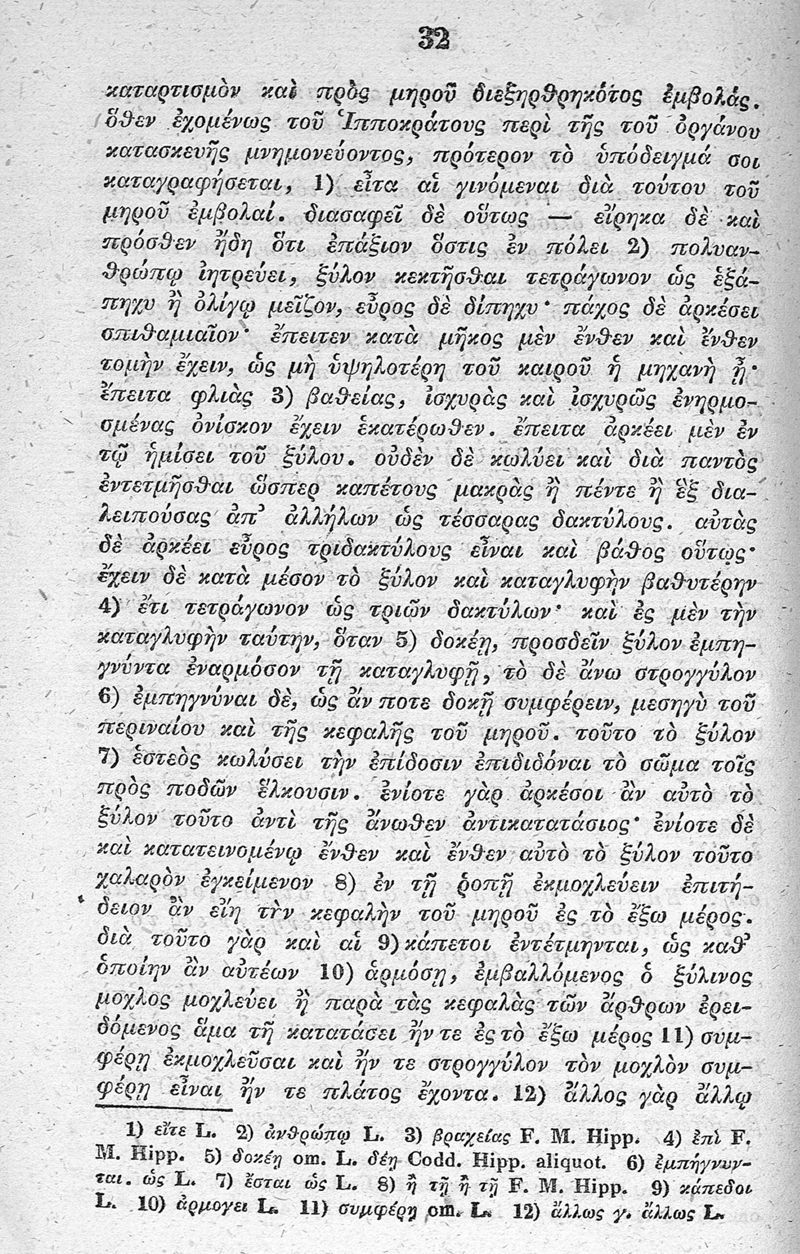 32
καταρτισμὸν καὶ πρὸς μηροῦ διεξηρθρηκότος ἐμβολάς.
ὅθεν ἐχομένως τοῦ Ἱπποκράτους περὶ τῆς τοῦ ὀργάνου
κατασκευῆς μνημονεύοντος, πρότερον τὸ ὑπόδειγμά σοι
καταγραφήσεται, 1) εἶτα αἱ γινόμεναι διὰ τούτου τοῦ
μηροῦ ἐμβολαί. διασαφεῖ δὲ οὕτως — εἴρηκα δὲ καὶ
πρόσθεν ἤδη ὅτι ἐπάξιον ὅστις ἐν πόλει 2) πολυαν-
θρώπῳ ἰητρεύει, ξύλον κεκτῆσθαι τετράγωνον ὡς ἑξά-
πηχυ ἢ ὀλίγῳ μεῖζον, εὖρος δὲ δίπηχυ· πάχος δὲ ἀρκέσει
σπιθαμιαῖον· ἔπειτεν κατὰ μῆκος μὲν ἔνθεν καὶ ἔνθεν
τομὴν ἔχειν, ὡς μὴ ὑψηλοτέρη τοῦ καιροῦ ἡ μηχανὴ ᾖ·
ἔπειτα φλιὰς 3) βαθείας, ἰσχυρὰς καὶ ἰσχυρῶς ἐνηρμο-
σμένας ὀνίσκον ἔχειν ἑκατέρωθεν. ἔπειτα ἀρκέει μὲν ἐν
τῷ ἡμίσει τοῦ ξύλου. οὐδὲν δὲ κωλύει καὶ διὰ παντὸς
ἐντετμῆσθαι ὥσπερ καπέτους μακρὰς ἢ πέντε ἢ ἓξ δια-
λειπούσας ἀπ' ἀλλήλων ὡς τέσσαρας δακτύλους. αὐτὰς
δὲ ἀρκέει εὖρος τριδακτύλους εἶναι καὶ βάθος οὕτως·
ἔχειν δὲ κατὰ μέσον τὸ ξύλον καὶ καταγλυφὴν βαθυτέρην
4) ἔτι τετράγωνον ὡς τριῶν δακτύλων· καὶ ἐς μὲν τὴν
καταγλυφὴν ταύτην, ὅταν 5) δοκέῃ, προσδεῖν ξύλον ἐμπη-
γνύντα ἐναρμόσον τῇ καταγλυφῇ, τὸ δὲ ἄνω στρογγύλον
6) ἐμπηγνύναι δὲ, ὡς ἄν ποτε δοκῇ συμφέρειν, μεσηγὺ τοῦ
περιναίου καὶ τῆς κεφαλῆς τοῦ μηροῦ. τοῦτο τὸ ξύλον
7) ἑστεὸς κωλύσει τὴν ἐπίδοσιν ἐπιδιδόναι τὸ σῶμα τοῖς
πρὸς ποδῶν ἕλκουσιν. ἐνίοτε γὰρ ἀρκέσοι ἂν αὐτὸ τὸ
ξύλον τοῦτο ἀντὶ τῆς ἄνωθεν ἀντικατατάσιος· ἐνίοτε δὲ
καὶ κατατεινομένῳ ἔνθεν καὶ ἔνθεν αὐτὸ τὸ ξύλον τοῦτο
χαλαρὸν ἐγκείμενον 8) ἐν τῇ ῥοπῇ ἐκμοχλεύειν ἐπιτή-
δειον ἂν εἴη τὴν κεφαλὴν τοῦ μηροῦ ἐς τὸ ἔξω μέρος.
διὰ τοῦτο γὰρ καὶ αἱ 9) κάπετοι ἐντέτμηνται, ὡς καθ'
ὁποίην ἂν αὐτέων 10) ἁρμόσῃ, ἐμβαλλόμενος ὁ ξύλινος
μοχλος μοχλεύει ἢ παρὰ τὰς κεφαλὰς τῶν ἄρθρων ἐρει-
δόμενος ἅμα τῇ κατατάσει ἤν τε ἐς τὸ ἔξω μέρος 11) συμ-
φέρῃ ἐκμοχλεῦσαι καὶ ἤν τε στρογγύλον τὸν μοχλὸν συμ-
φέρῃ εἶναι ἤν τε πλάτος ἔχοντα. 12) ἄλλος γὰρ ἄλλῳ
1) εἴτε L. 2) ἀνθρώπῳ L. 3) βραχείας F. M. Hipp. 4) ἐπὶ F.
M. Hipp. 5) δοκέῃ om. L. δέῃ Codd. Hipp. aliquot. 6) ἐμπήγνυν-
ται. ὡς L. 7) ἔσται ὡς L. 8) ἢ τῇ ἢ τῇ F. M. Hipp. 9) κάπεδοι
L. 10) ἁρμογει L. 11) συμφέρῃ om. L. 12) ἄλλως γ. ἄλλως L.